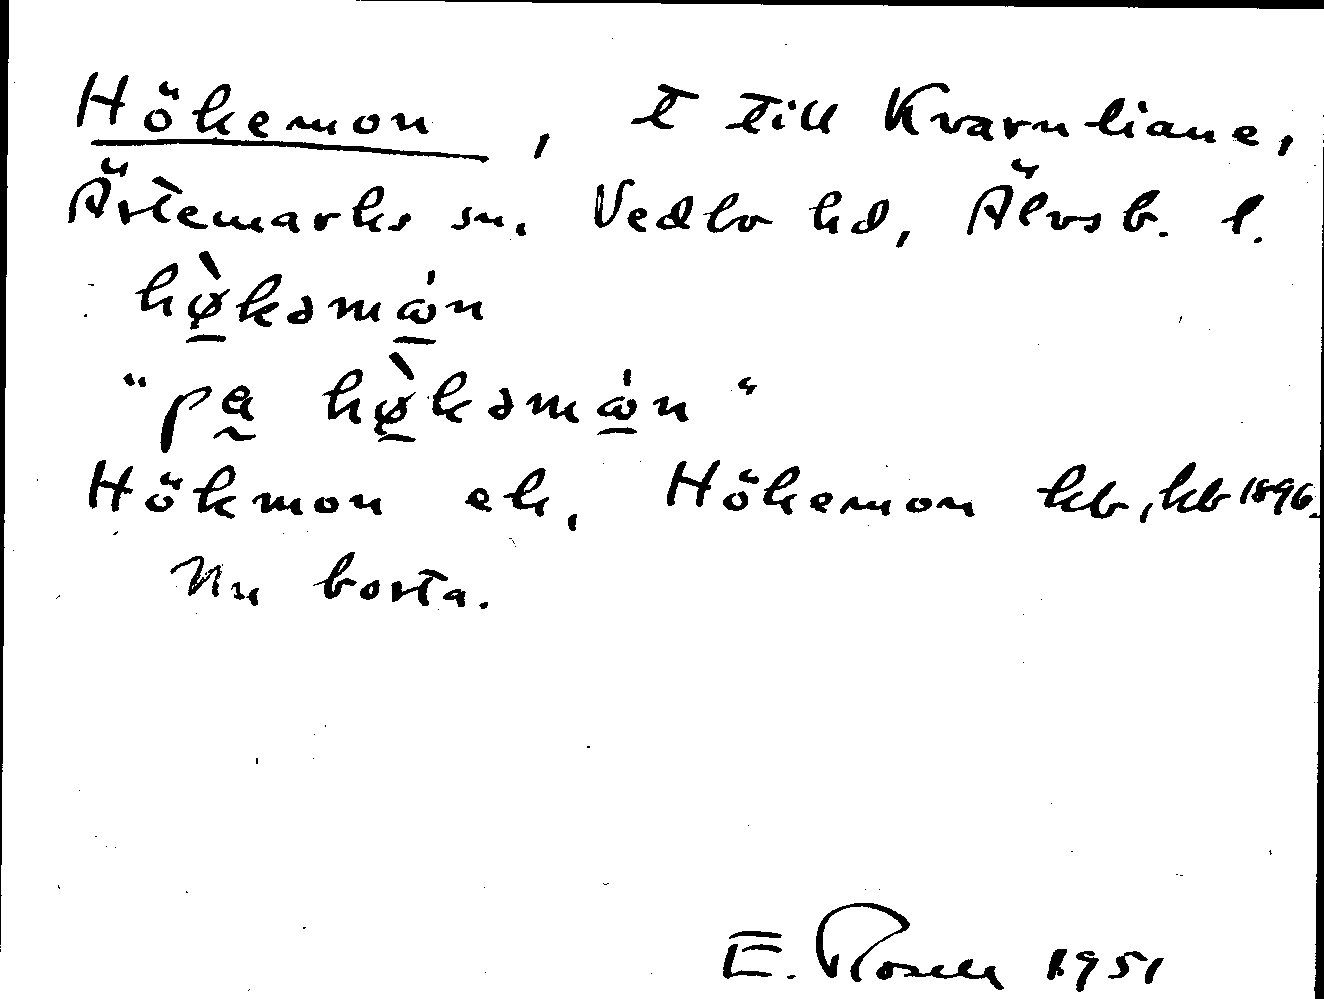 Hökemon, t till Kvarnliane,
Ärtemarks sn. Vedbo hd, Älvsb. l.
hø̀kəmὼn
"pa hø̀kəmὼn"
Hökmon ek, Hökemon kb, kb 1896.
Nu borta.
E. Rosell 1951